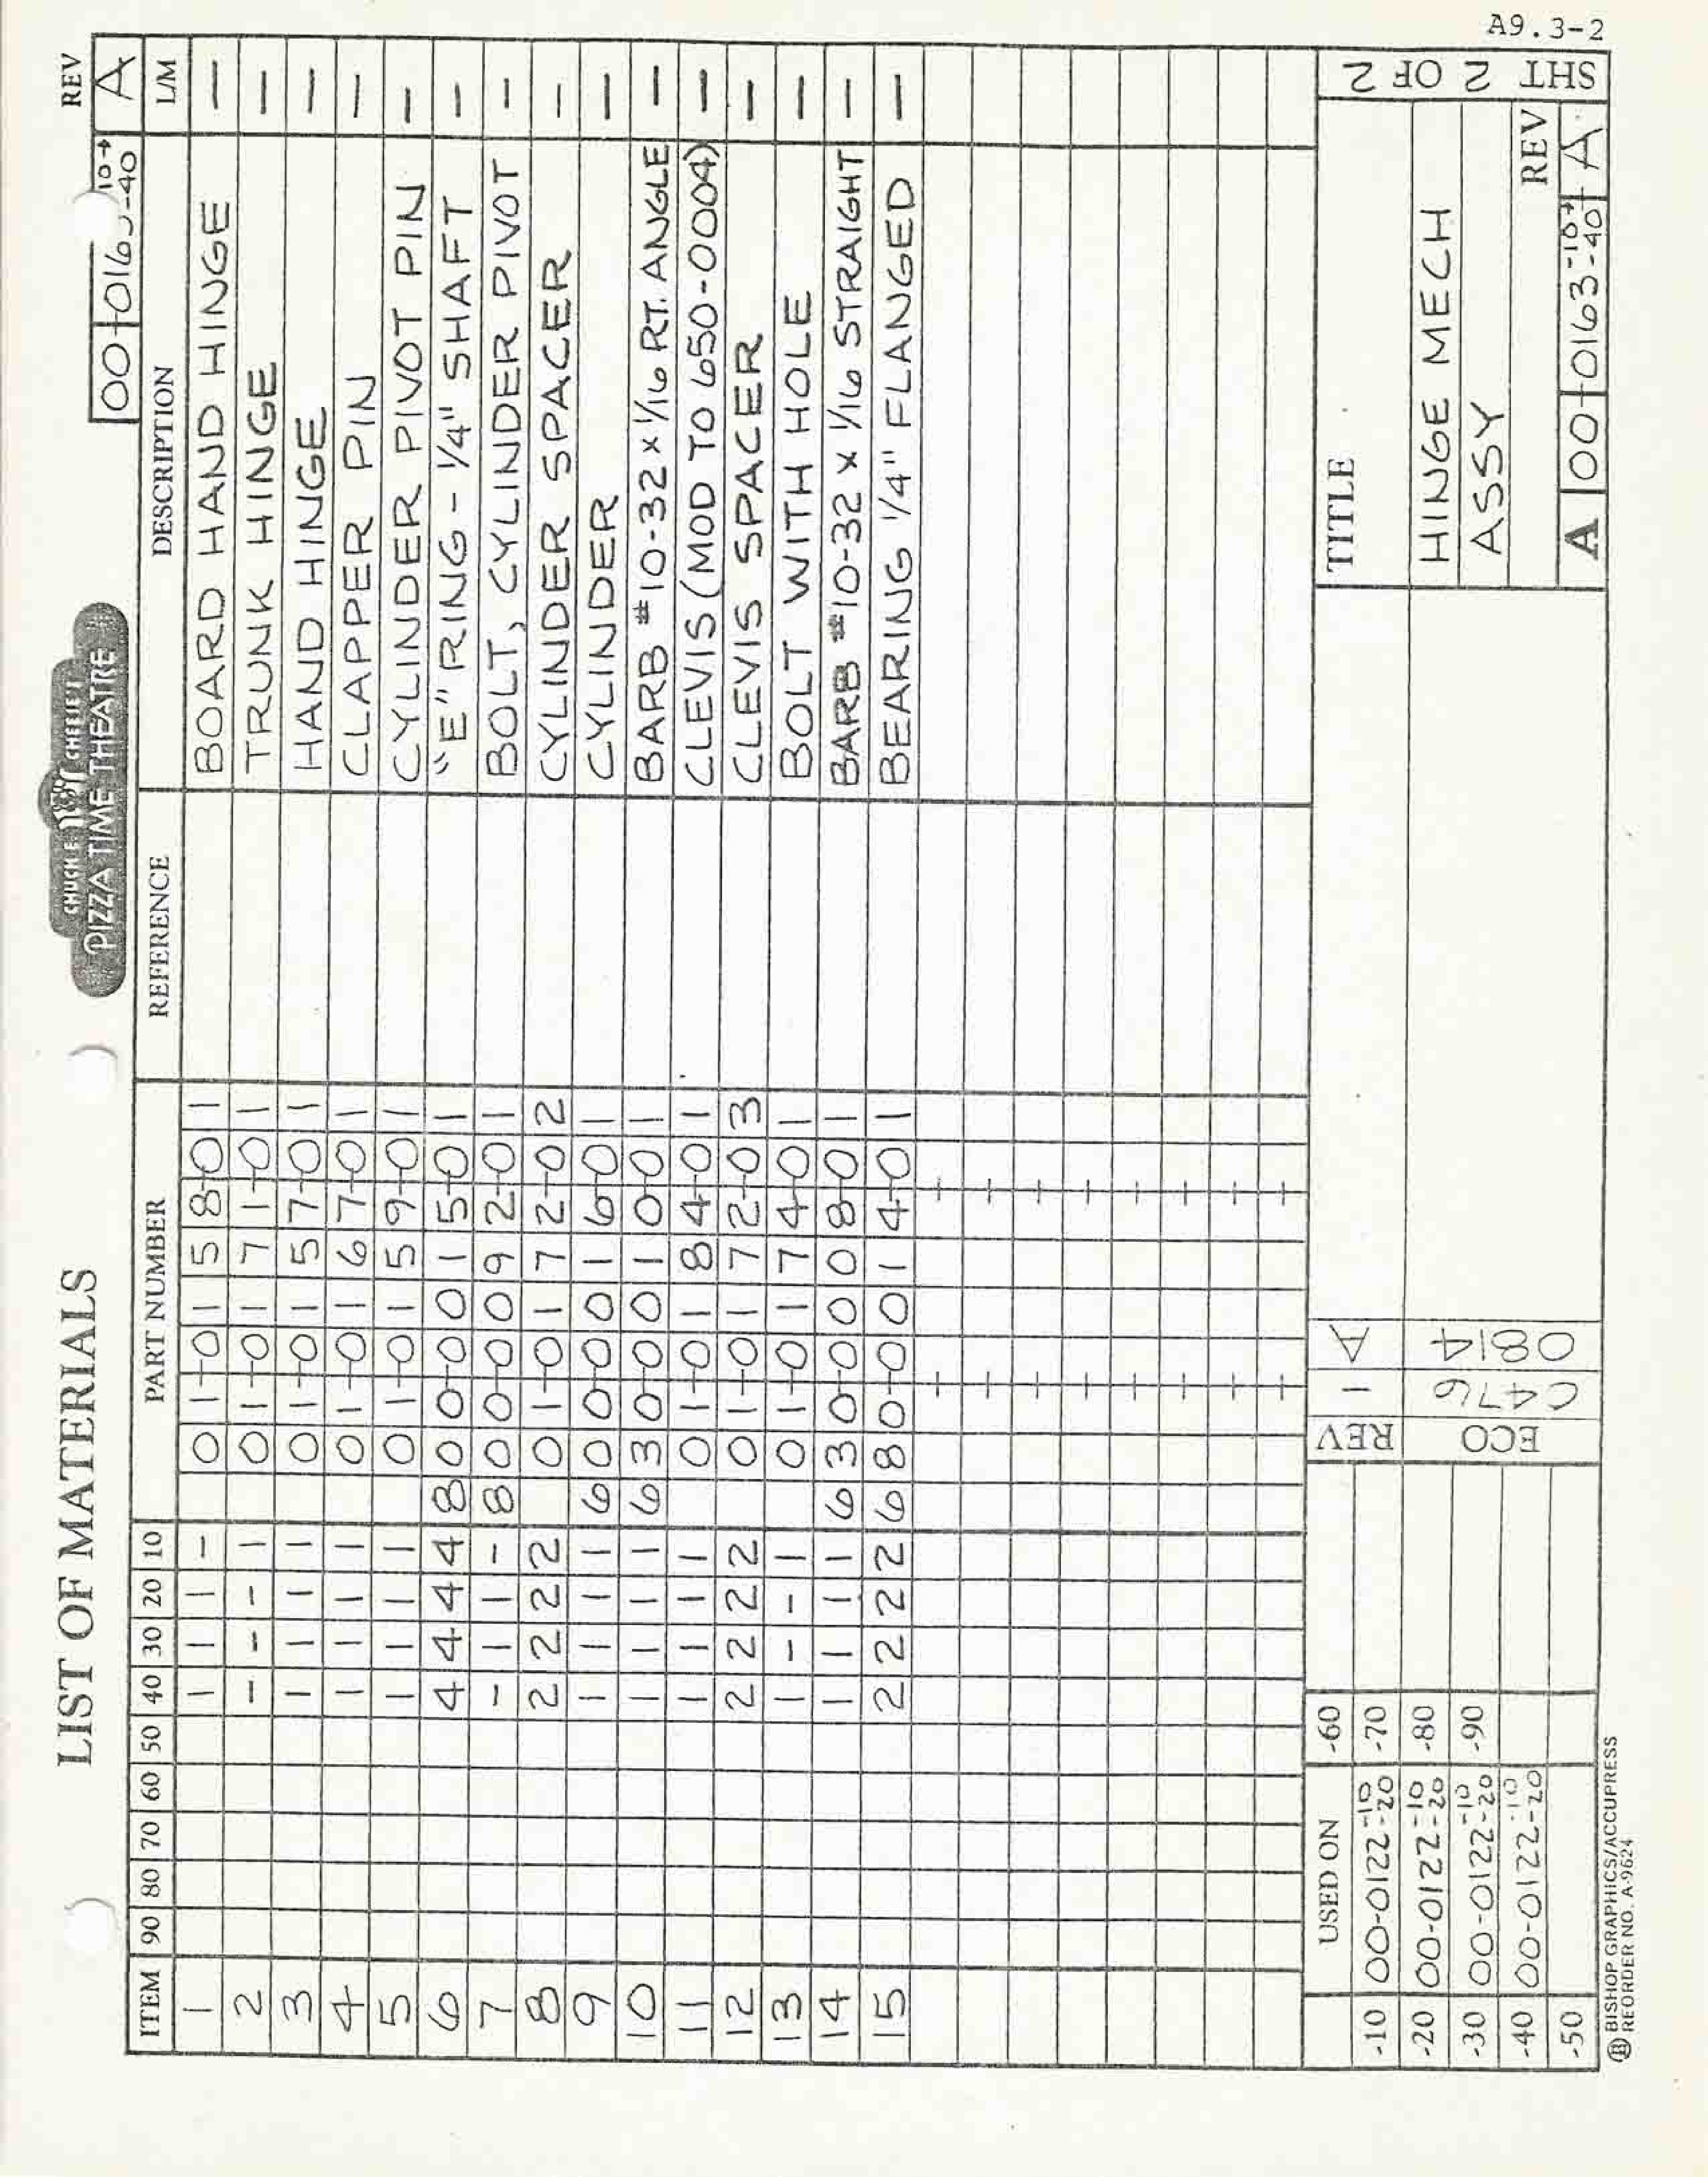 A9.3-2
LIST OF MATERIALS
CHUCK E CHEESE'S
PIZZA TIME THEATRE
REV
00-0163-10→-40 A
ITEM 90 80 70 60 50 40 30 20 10 PART NUMBER REFERENCE DESCRIPTION L/M
1 1 1 1 - 01-0158-01 BOARD HAND HINGE —
2 - - - 1 01-0171-01 TRUNK HINGE —
3 1 1 1 1 01-0157-01 HAND HINGE —
4 1 1 1 1 01-0167-01 CLAPPER PIN —
5 1 1 1 1 01-0159-01 CYLINDER PIVOT PIN —
6 4 4 4 4 800-0015-01 "E" RING - 1/4" SHAFT —
7 - 1 1 - 800-0092-01 BOLT, CYLINDER PIVOT —
8 2 2 2 2 01-0172-02 CYLINDER SPACER —
9 1 1 1 1 600-0016-01 CYLINDER —
10 1 1 1 1 630-0010-01 BARB #10-32 x 1/16 RT. ANGLE —
11 1 1 1 1 01-0184-01 CLEVIS (MOD TO 650-0004) —
12 2 2 2 2 01-0172-03 CLEVIS SPACER —
13 1 - - 1 01-0174-01 BOLT WITH HOLE —
14 1 1 1 1 630-0008-01 BARB #10-32 x 1/16 STRAIGHT —
15 2 2 2 2 680-0014-01 BEARING 1/4" FLANGED —
USED ON
-10 00-0122-10-20
-20 00-0122-10-20
-30 00-0122-10-20
-40 00-0122-10-20
-50
-60
-70
-80
-90
REV - A
ECO C476 0814
TITLE
HINGE MECH
ASSY
REV
A 00-0163-10→-40 A
SHT 2 OF 2
BISHOP GRAPHICS/ACCUPRESS
REORDER NO. A-9624